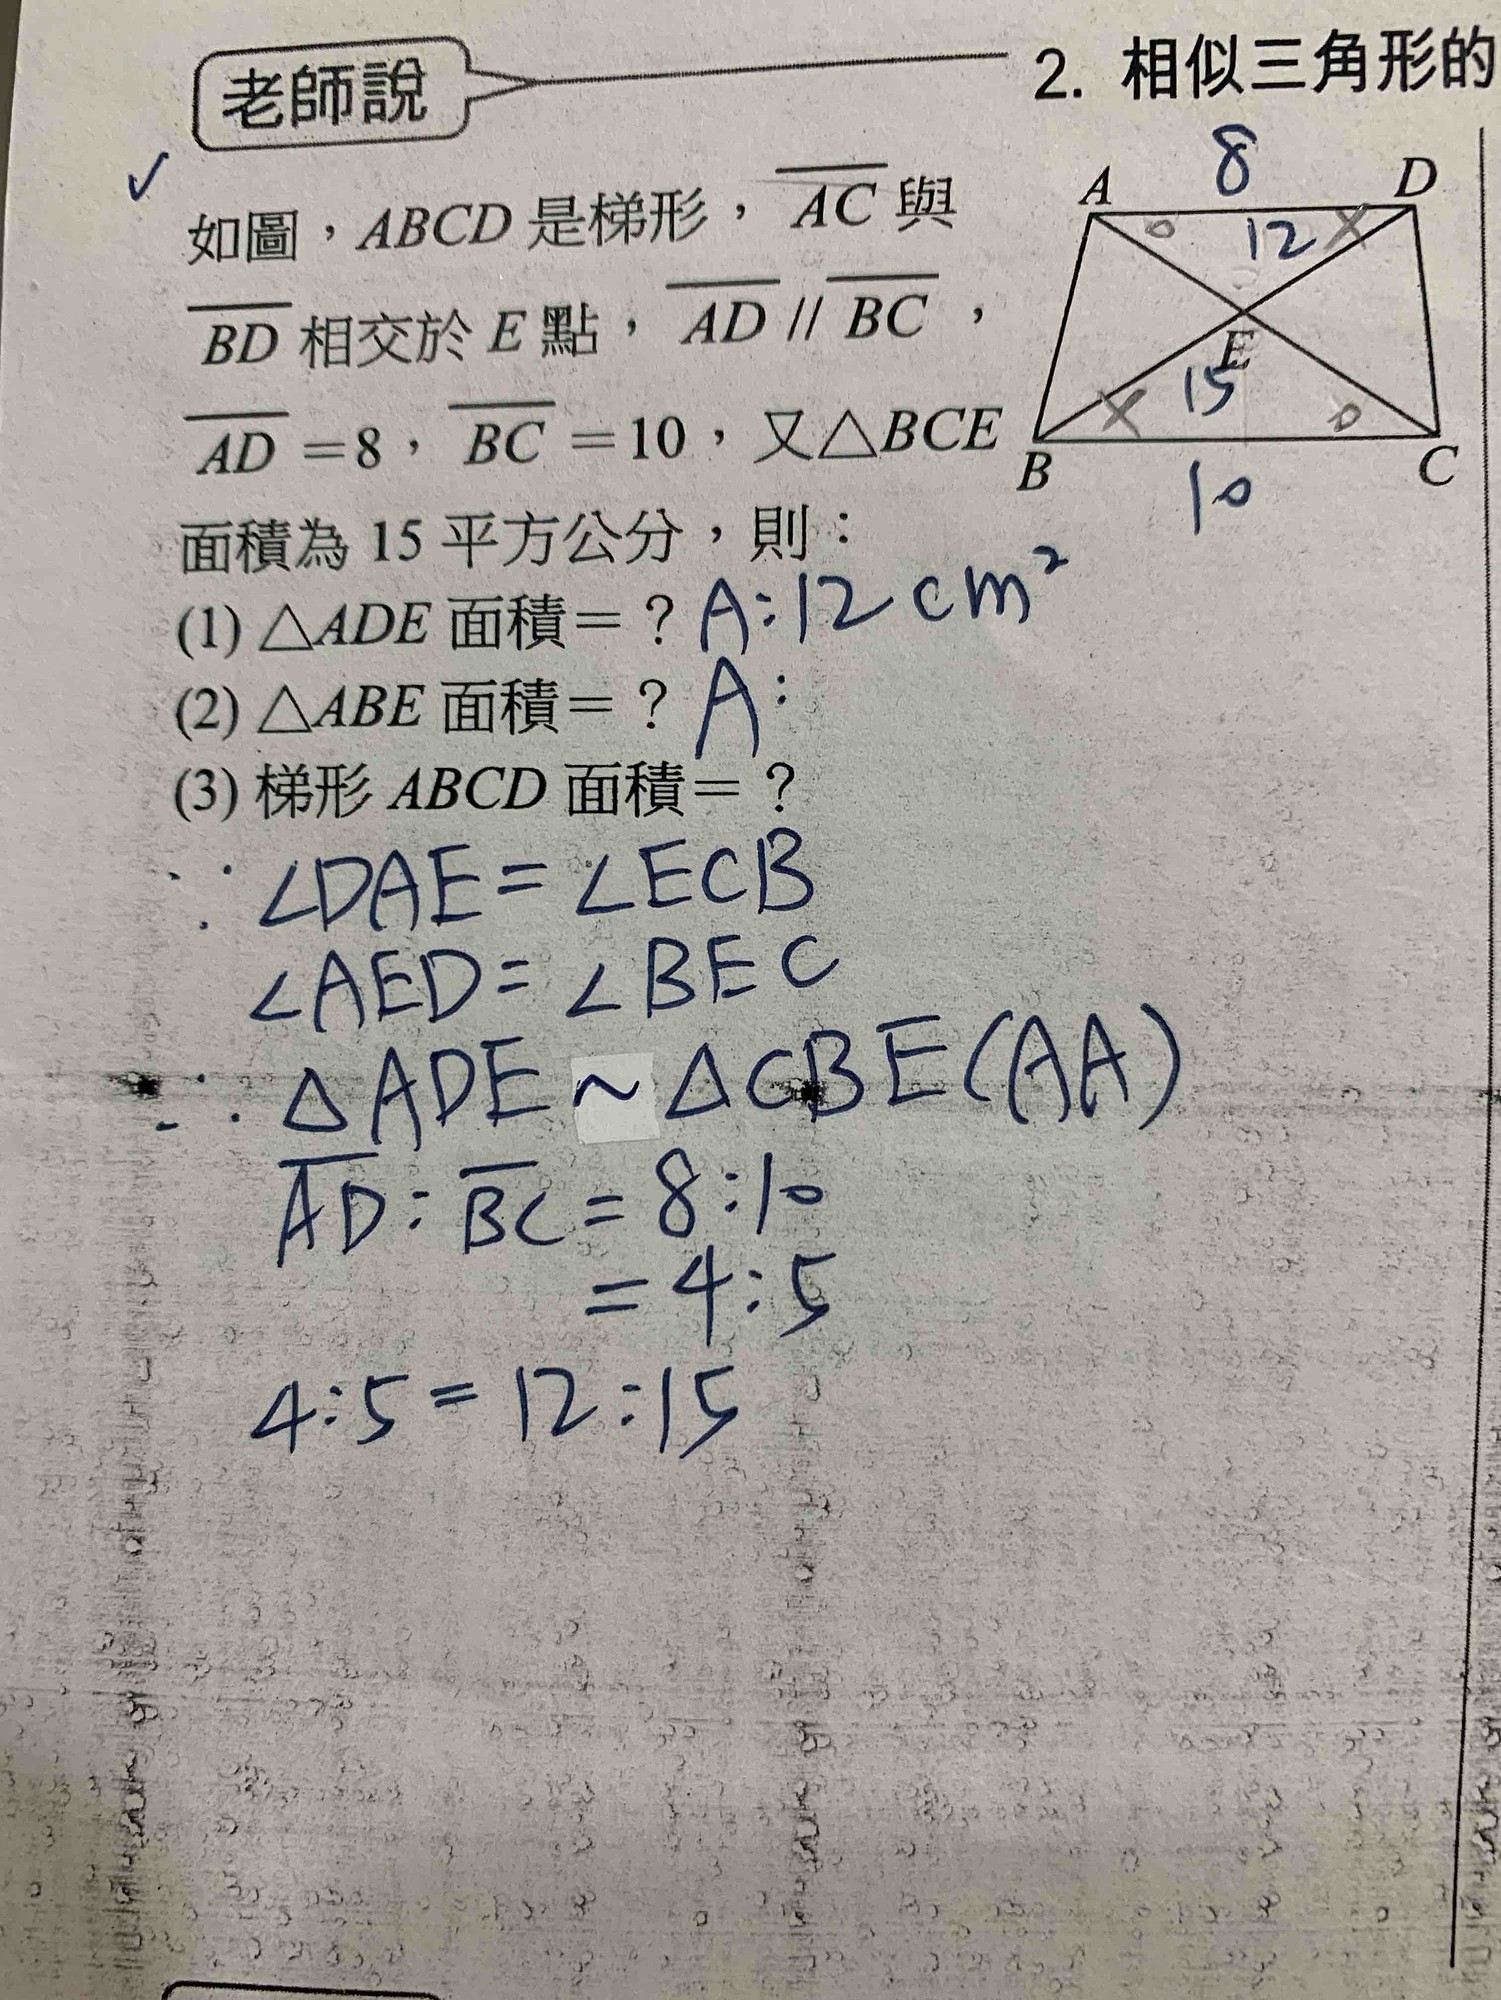 老師說
2. 相似三角形的
如圖，ABCD 是梯形，AC 與
BD 相交於 E 點，AD // BC，
AD＝8，BC＝10，又△BCE
面積為 15 平方公分，則：
(1) △ADE 面積＝？ A:12 cm²
(2) △ABE 面積＝？ A:
(3) 梯形 ABCD 面積＝？
8
A
D
12
E
15
B
C
10
∵ ∠DAE = ∠ECB
∠AED = ∠BEC
∴ △ADE ~ △CBE (AA)
AD : BC = 8:10
= 4:5
4:5 = 12:15